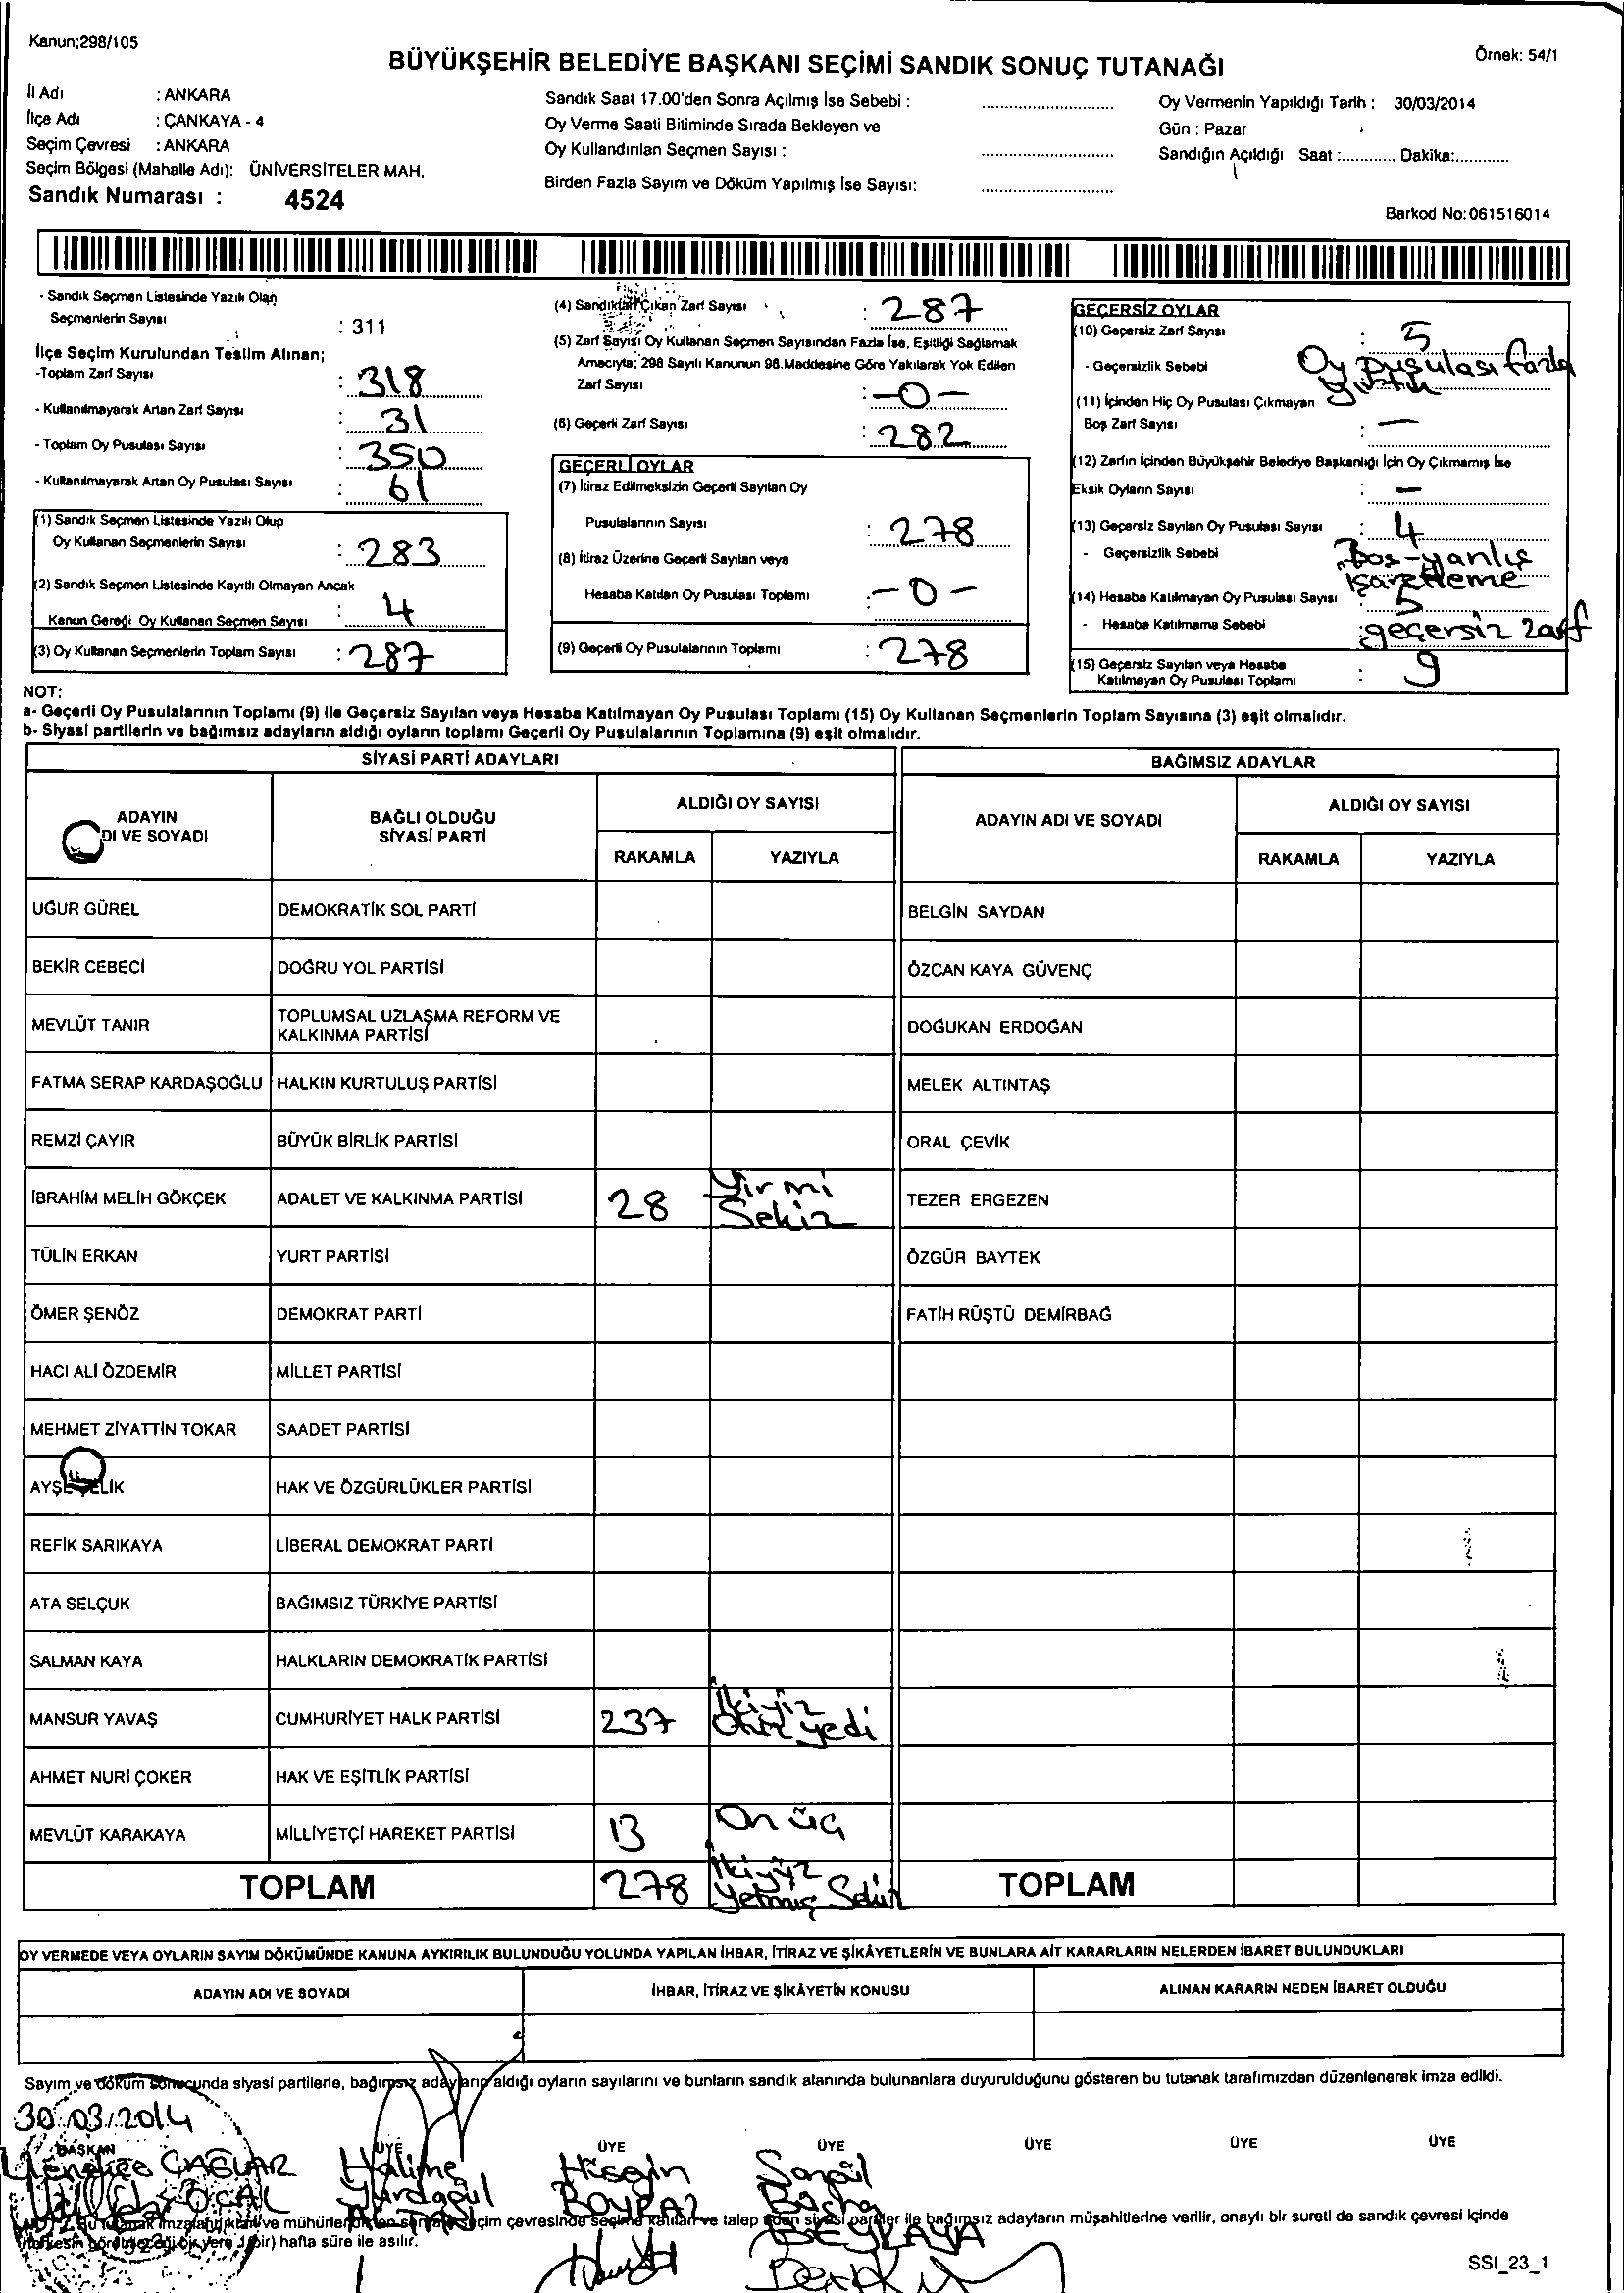 Kanun;298/105
Örnek: 54/1
BÜYÜKŞEHİR BELEDİYE BAŞKANI SEÇİMİ SANDIK SONUÇ TUTANAĞI
İl Adı : ANKARA
İlçe Adı : ÇANKAYA - 4
Seçim Çevresi : ANKARA
Seçim Bölgesi (Mahalle Adı): ÜNİVERSİTELER MAH.
Sandık Numarası : 4524
Sandık Saat 17.00'den Sonra Açılmış İse Sebebi :
Oy Verme Saati Bitiminde Sırada Bekleyen ve
Oy Kullandırılan Seçmen Sayısı :
Birden Fazla Sayım ve Döküm Yapılmış İse Sayısı:
Oy Vermenin Yapıldığı Tarih : 30/03/2014
Gün : Pazar
Sandığın Açıldığı Saat :............ Dakika:............
Barkod No:061516014
- Sandık Seçmen Listesinde Yazılı Olan
Seçmenlerin Sayısı : 311
İlçe Seçim Kurulundan Teslim Alınan;
-Toplam Zarf Sayısı : 318
- Kullanılmayarak Artan Zarf Sayısı : 31
- Toplam Oy Pusulası Sayısı : 350
- Kullanılmayarak Artan Oy Pusulası Sayısı : 61
(1) Sandık Seçmen Listesinde Yazılı Olup
Oy Kullanan Seçmenlerin Sayısı : 283
(2) Sandık Seçmen Listesinde Kayıtlı Olmayan Ancak
Kanun Gereği Oy Kullanan Seçmen Sayısı : 4
(3) Oy Kullanan Seçmenlerin Toplam Sayısı : 287
(4) Sandıktan Çıkan Zarf Sayısı : 287
(5) Zarf Sayısı Oy Kullanan Seçmen Sayısından Fazla İse, Eşitliği Sağlamak
Amacıyla; 298 Sayılı Kanunun 98.Maddesine Göre Yakılarak Yok Edilen
Zarf Sayısı : -0-
(6) Geçerli Zarf Sayısı : 282
GEÇERLİ OYLAR
(7) İtiraz Edilmeksizin Geçerli Sayılan Oy
Pusulalarının Sayısı : 278
(8) İtiraz Üzerine Geçerli Sayılan veya
Hesaba Katılan Oy Pusulası Toplamı : -0-
(9) Geçerli Oy Pusulalarının Toplamı : 278
GEÇERSİZ OYLAR
(10) Geçersiz Zarf Sayısı : 5
- Geçersizlik Sebebi Oy pusulası fazla
yırtık
(11) İçinden Hiç Oy Pusulası Çıkmayan
Boş Zarf Sayısı : -
(12) Zarfın İçinden Büyükşehir Belediye Başkanlığı İçin Oy Çıkmamış İse
Eksik Oyların Sayısı : -
(13) Geçersiz Sayılan Oy Pusulası Sayısı : 4
- Geçersizlik Sebebi Boş-yanlış
işaretleme
(14) Hesaba Katılmayan Oy Pusulası Sayısı : 5
- Hesaba Katılmama Sebebi : geçersiz zarf
(15) Geçersiz Sayılan veya Hesaba
Katılmayan Oy Pusulası Toplamı : 9
NOT:
a- Geçerli Oy Pusulalarının Toplamı (9) ile Geçersiz Sayılan veya Hesaba Katılmayan Oy Pusulası Toplamı (15) Oy Kullanan Seçmenlerin Toplam Sayısına (3) eşit olmalıdır.
b- Siyasi partilerin ve bağımsız adayların aldığı oyların toplamı Geçerli Oy Pusulalarının Toplamına (9) eşit olmalıdır.
SİYASİ PARTİ ADAYLARI
BAĞIMSIZ ADAYLAR
ADAYIN
DI VE SOYADI
BAĞLI OLDUĞU
SİYASİ PARTİ
ALDIĞI OY SAYISI
RAKAMLA YAZIYLA
ADAYIN ADI VE SOYADI
ALDIĞI OY SAYISI
RAKAMLA YAZIYLA
UĞUR GÜREL DEMOKRATİK SOL PARTİ BELGİN SAYDAN
BEKİR CEBECİ DOĞRU YOL PARTİSİ ÖZCAN KAYA GÜVENÇ
MEVLÜT TANIR TOPLUMSAL UZLAŞMA REFORM VE
KALKINMA PARTİSİ DOĞUKAN ERDOĞAN
FATMA SERAP KARDAŞOĞLU HALKIN KURTULUŞ PARTİSİ MELEK ALTINTAŞ
REMZİ ÇAYIR BÜYÜK BİRLİK PARTİSİ ORAL ÇEVİK
İBRAHİM MELİH GÖKÇEK ADALET VE KALKINMA PARTİSİ 28 Yirmi
Sekiz TEZER ERGEZEN
TÜLİN ERKAN YURT PARTİSİ ÖZGÜR BAYTEK
ÖMER ŞENÖZ DEMOKRAT PARTİ FATİH RÜŞTÜ DEMİRBAĞ
HACI ALİ ÖZDEMİR MİLLET PARTİSİ
MEHMET ZİYATTİN TOKAR SAADET PARTİSİ
AYŞE ÇELİK HAK VE ÖZGÜRLÜKLER PARTİSİ
REFİK SARIKAYA LİBERAL DEMOKRAT PARTİ
ATA SELÇUK BAĞIMSIZ TÜRKİYE PARTİSİ
SALMAN KAYA HALKLARIN DEMOKRATİK PARTİSİ
MANSUR YAVAŞ CUMHURİYET HALK PARTİSİ 237 yedi
AHMET NURİ ÇOKER HAK VE EŞİTLİK PARTİSİ
MEVLÜT KARAKAYA MİLLİYETÇİ HAREKET PARTİSİ 13 On üç
TOPLAM 278 İkiyüz
Yetmiş Sekiz TOPLAM
OY VERMEDE VEYA OYLARIN SAYIM DÖKÜMÜNDE KANUNA AYKIRILIK BULUNDUĞU YOLUNDA YAPILAN İHBAR, İTİRAZ VE ŞİKÂYETLERİN VE BUNLARA AİT KARARLARIN NELERDEN İBARET BULUNDUKLARI
ADAYIN ADI VE SOYADI İHBAR, İTİRAZ VE ŞİKÂYETİN KONUSU ALINAN KARARIN NEDEN İBARET OLDUĞU
Sayım ve döküm sonucunda siyasi partilerle, bağımsız adayların aldığı oyların sayılarını ve bunların sandık alanında bulunanlara duyurulduğunu gösteren bu tutanak tarafımızdan düzenlenerek imza edildi.
30.03.2014
BAŞKAN ÜYE ÜYE ÜYE ÜYE ÜYE ÜYE
ÇAĞLAR Halime Hüseyin Songül
ÖCAL Yurdagül BOYRAZ Başha
AKTAŞ BEYKAYA
imzalandıktan ve mühürlendikten sonra seçim çevresinde seçime katılan ve talep eden siyasi partiler ile bağımsız adayların müşahitlerine verilir, onaylı bir sureti de sandık çevresi içinde
herkesin görebileceği bir yere 1(bir) hafta süre ile asılır.
SSI_23_1